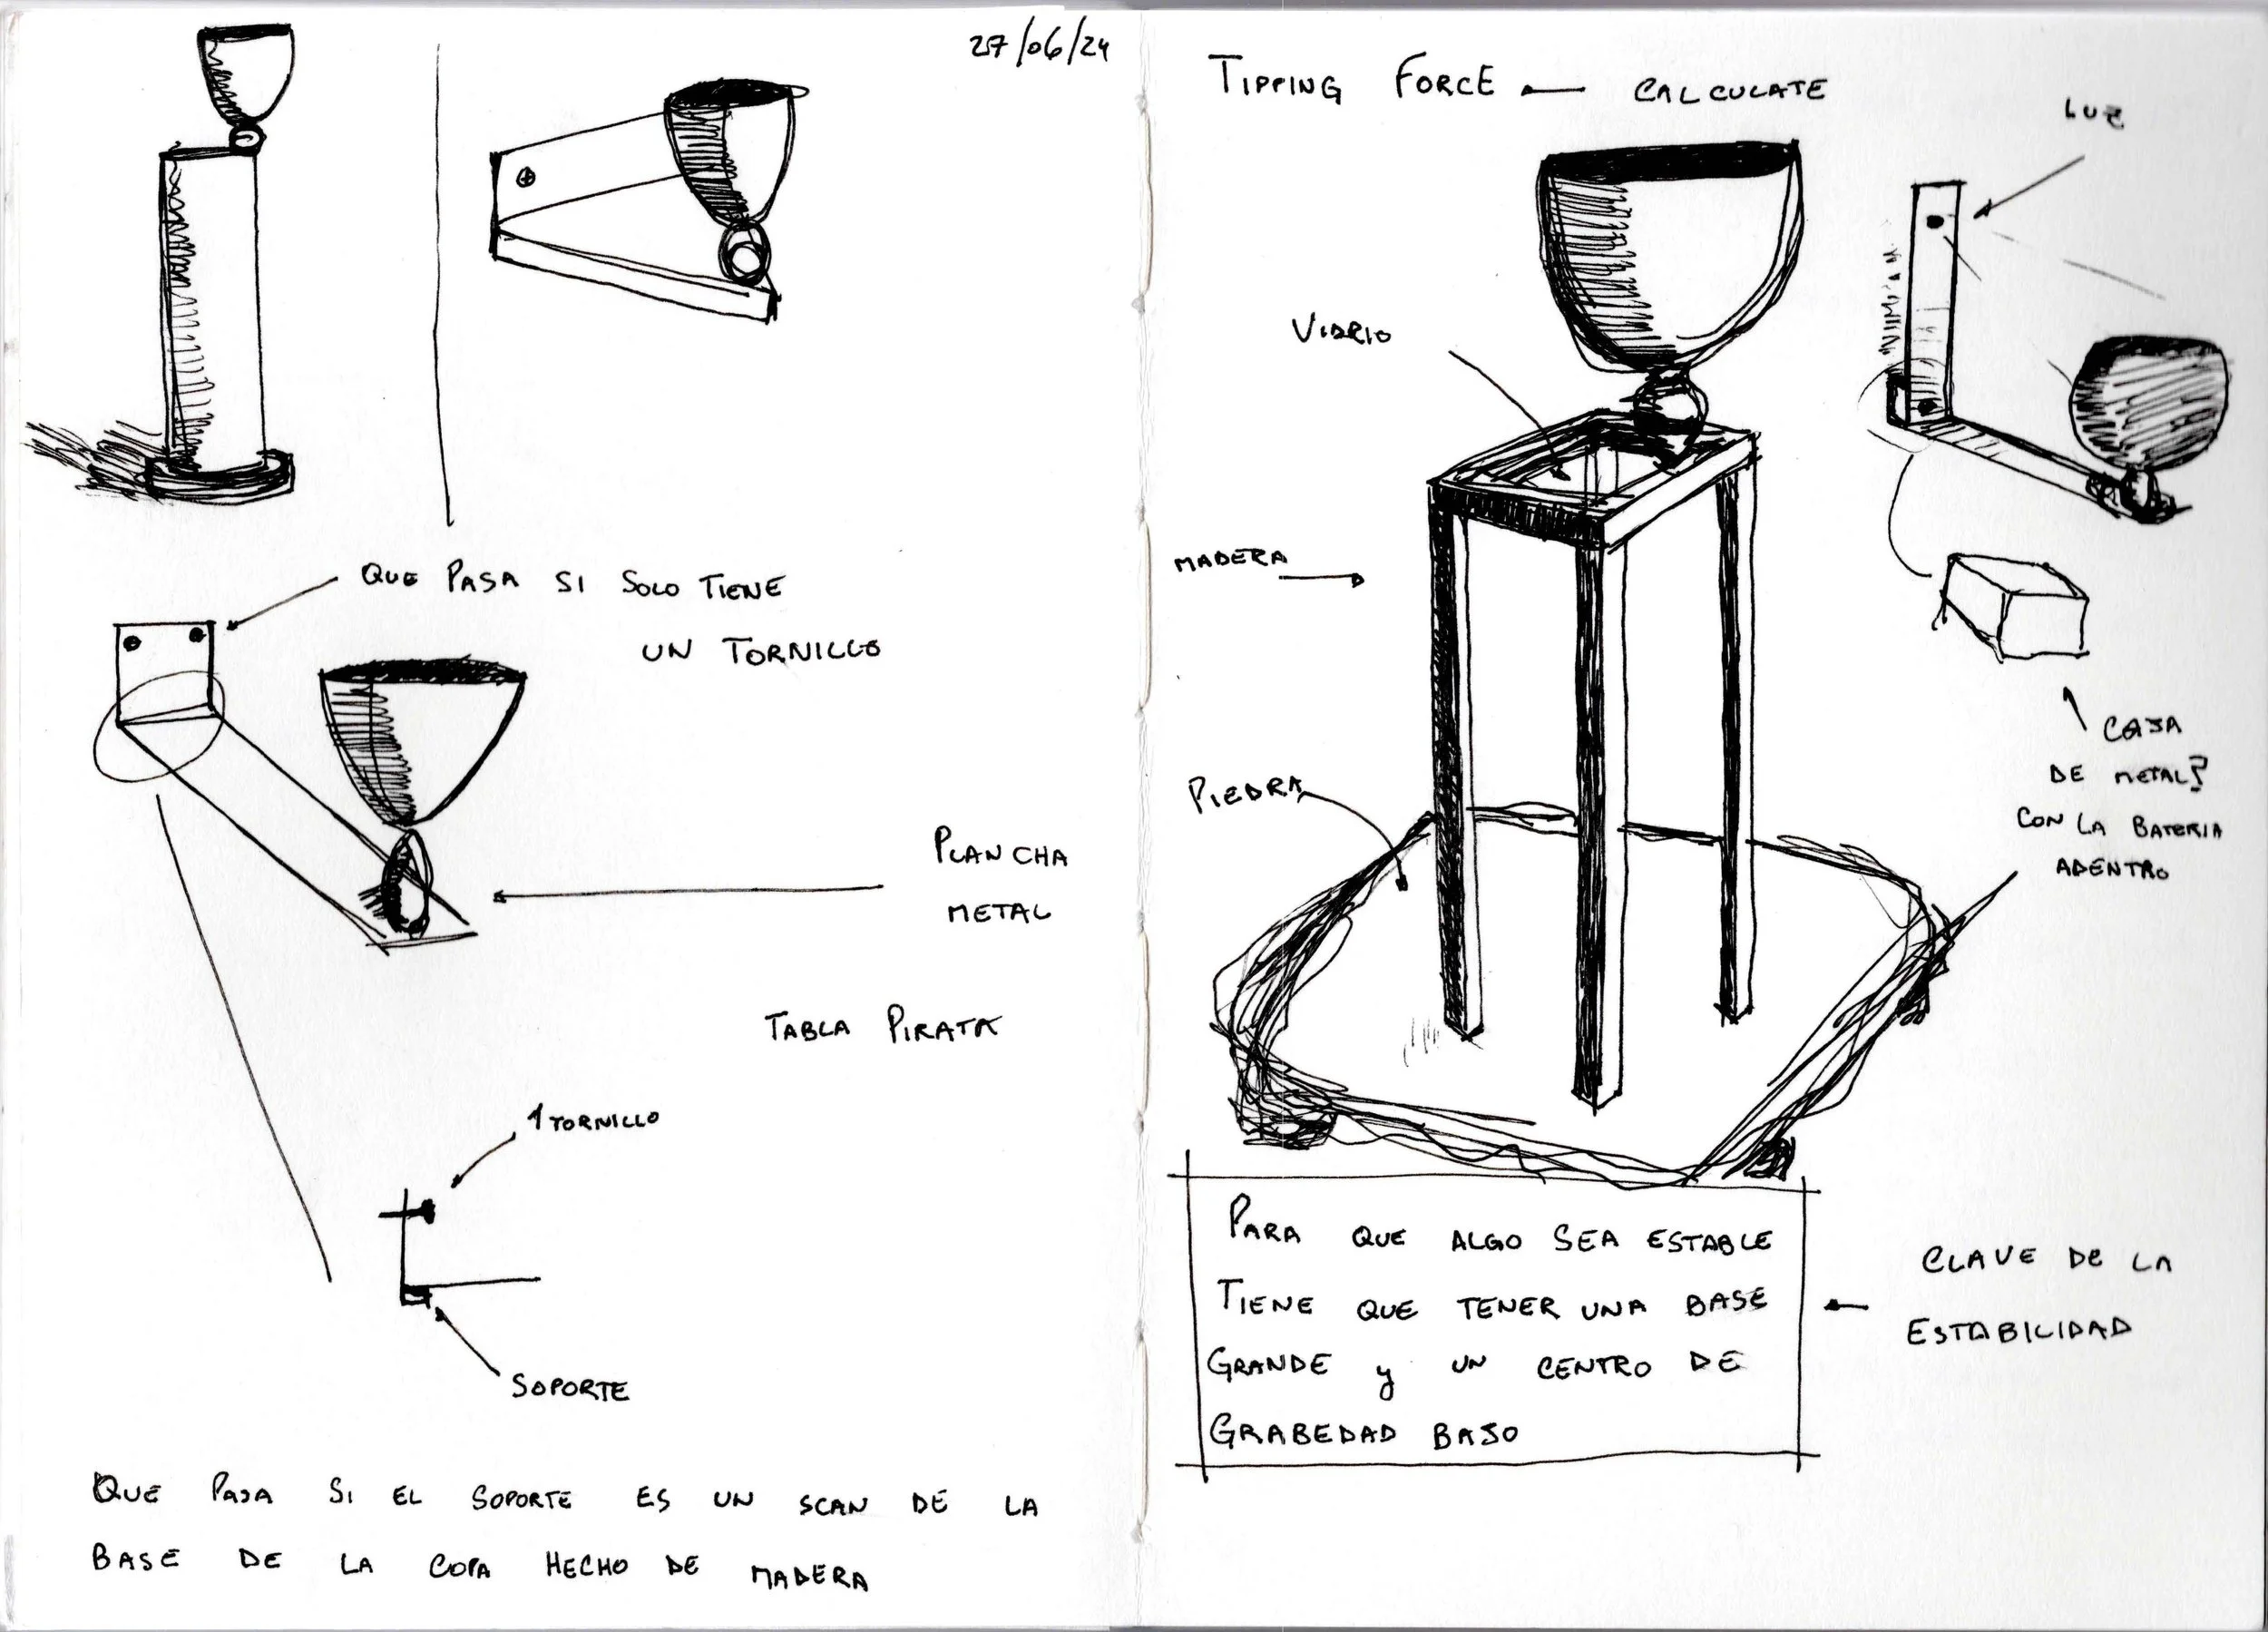 27/06/24
QUE PASA SI SOLO TIENE
UN TORNILLO
PLANCHA
METAL
TABLA PIRATA
1 TORNILLO
SOPORTE
QUE PASA SI EL SOPORTE ES UN SCAN DE LA
BASE DE LA COPA HECHO DE MADERA
TIPPING FORCE CALCULATE
LUZ
VIDRIO
MADERA
PIEDRA
CAJA
DE METAL?
CON LA BATERIA
ADENTRO
PARA QUE ALGO SEA ESTABLE
TIENE QUE TENER UNA BASE
GRANDE y UN CENTRO DE
GRABEDAD BAJO
CLAVE DE LA
ESTABILIDAD